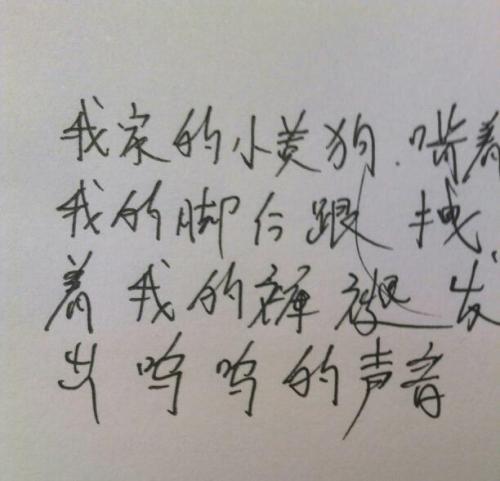 我家的小黄狗.啃着
我的脚后跟 拽
着我的裤褪发
出呜呜的声音